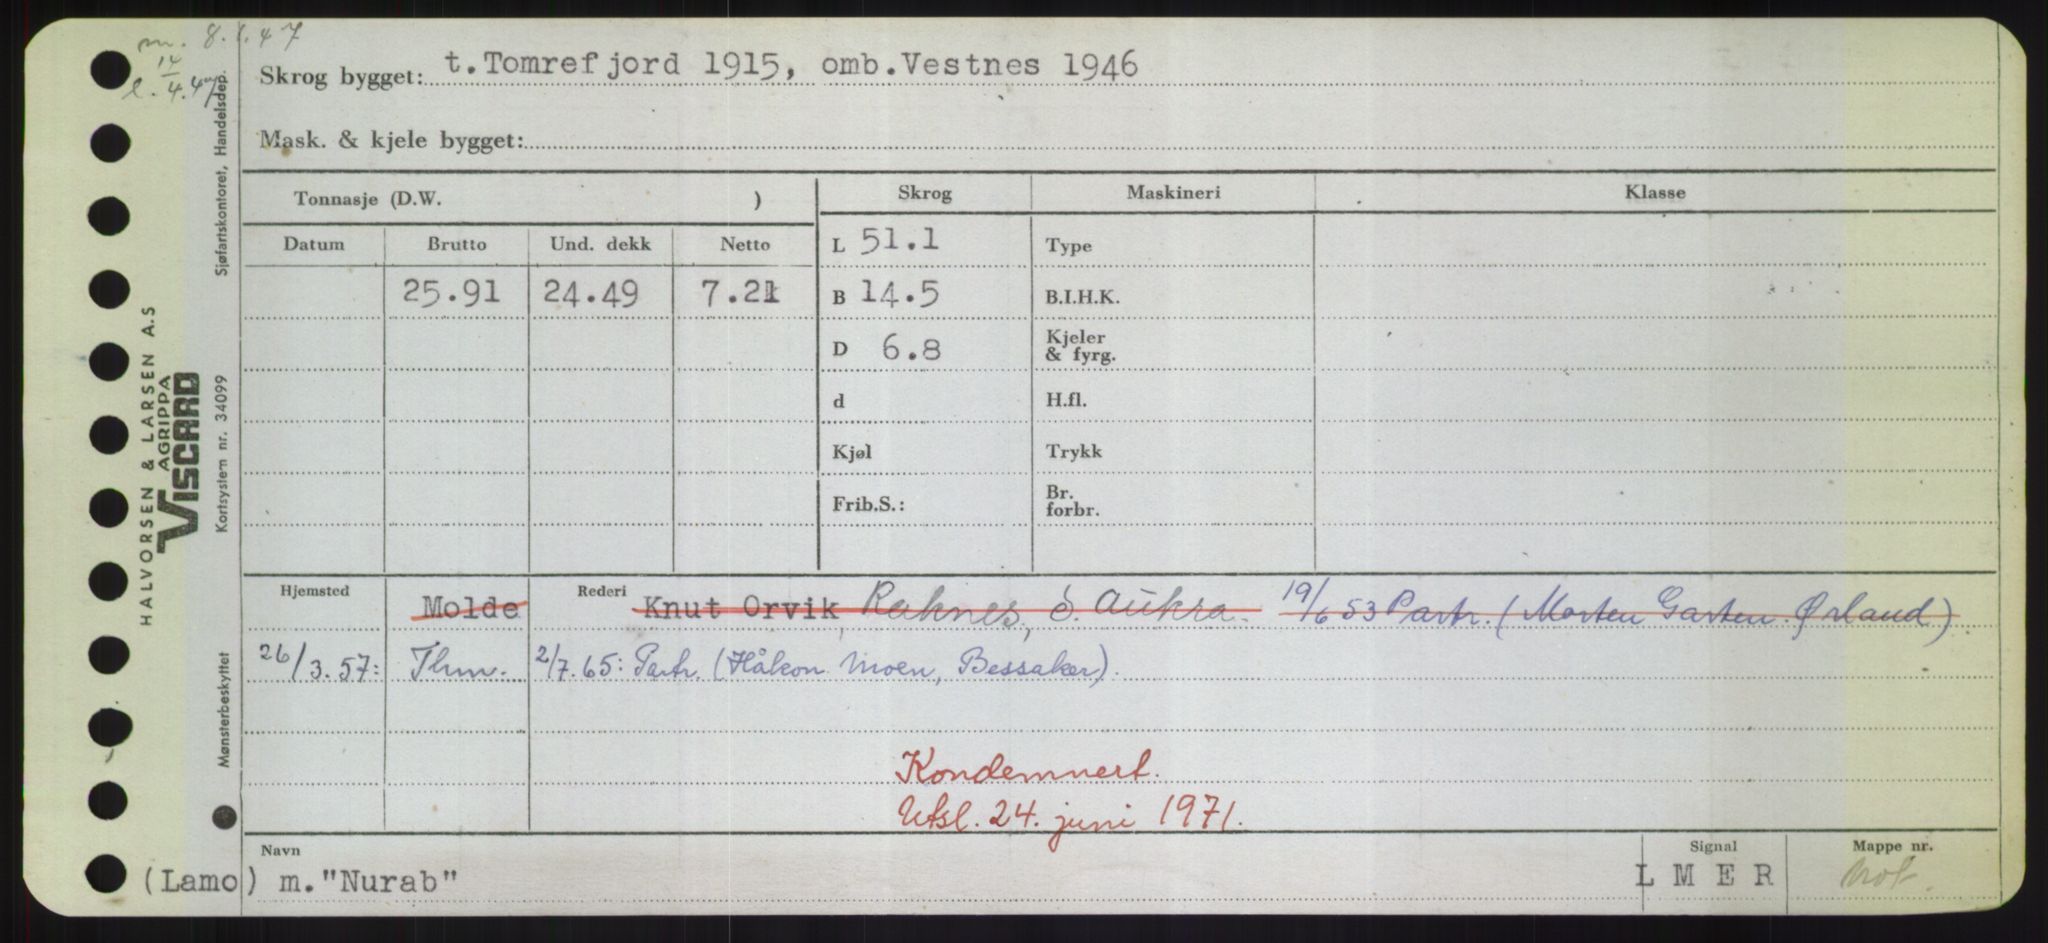 m. 8.1.47
14
l. 4.47
Skrog bygget: t.Tomrefjord 1915, omb.Vestnes 1946
Mask. & kjele bygget:
Tonnasje (D.W. )
Skrog Maskineri Klasse
Datum Brutto Und. dekk Netto
L 51.1 Type
25.91 24.49 7.21
B 14.5 B.I.H.K.
D 6.8 Kjeler & fyrg.
d H.fl.
Kjøl Trykk
Frib.S.: Br. forbr.
Hjemsted Molde Rederi Knut Orvik, Raknes, S. Aukra. 19/6 53 Partr. (Morten Garten. Ørland).
26/3.57: Thm. 2/7.65: Partr. (Håkon Moen, Bessaker).
Kondemnert.
Utsl. 24. juni 1971.
Navn Signal Mappe nr.
(Lamo) m."Nurab" L M E R not.
HALVORSEN & LARSEN A.S
AGRIPPA
VISCARD
Mønsterbeskyttet Kortsystem nr. 34099 Sjøfartskontoret, Handelsdep.